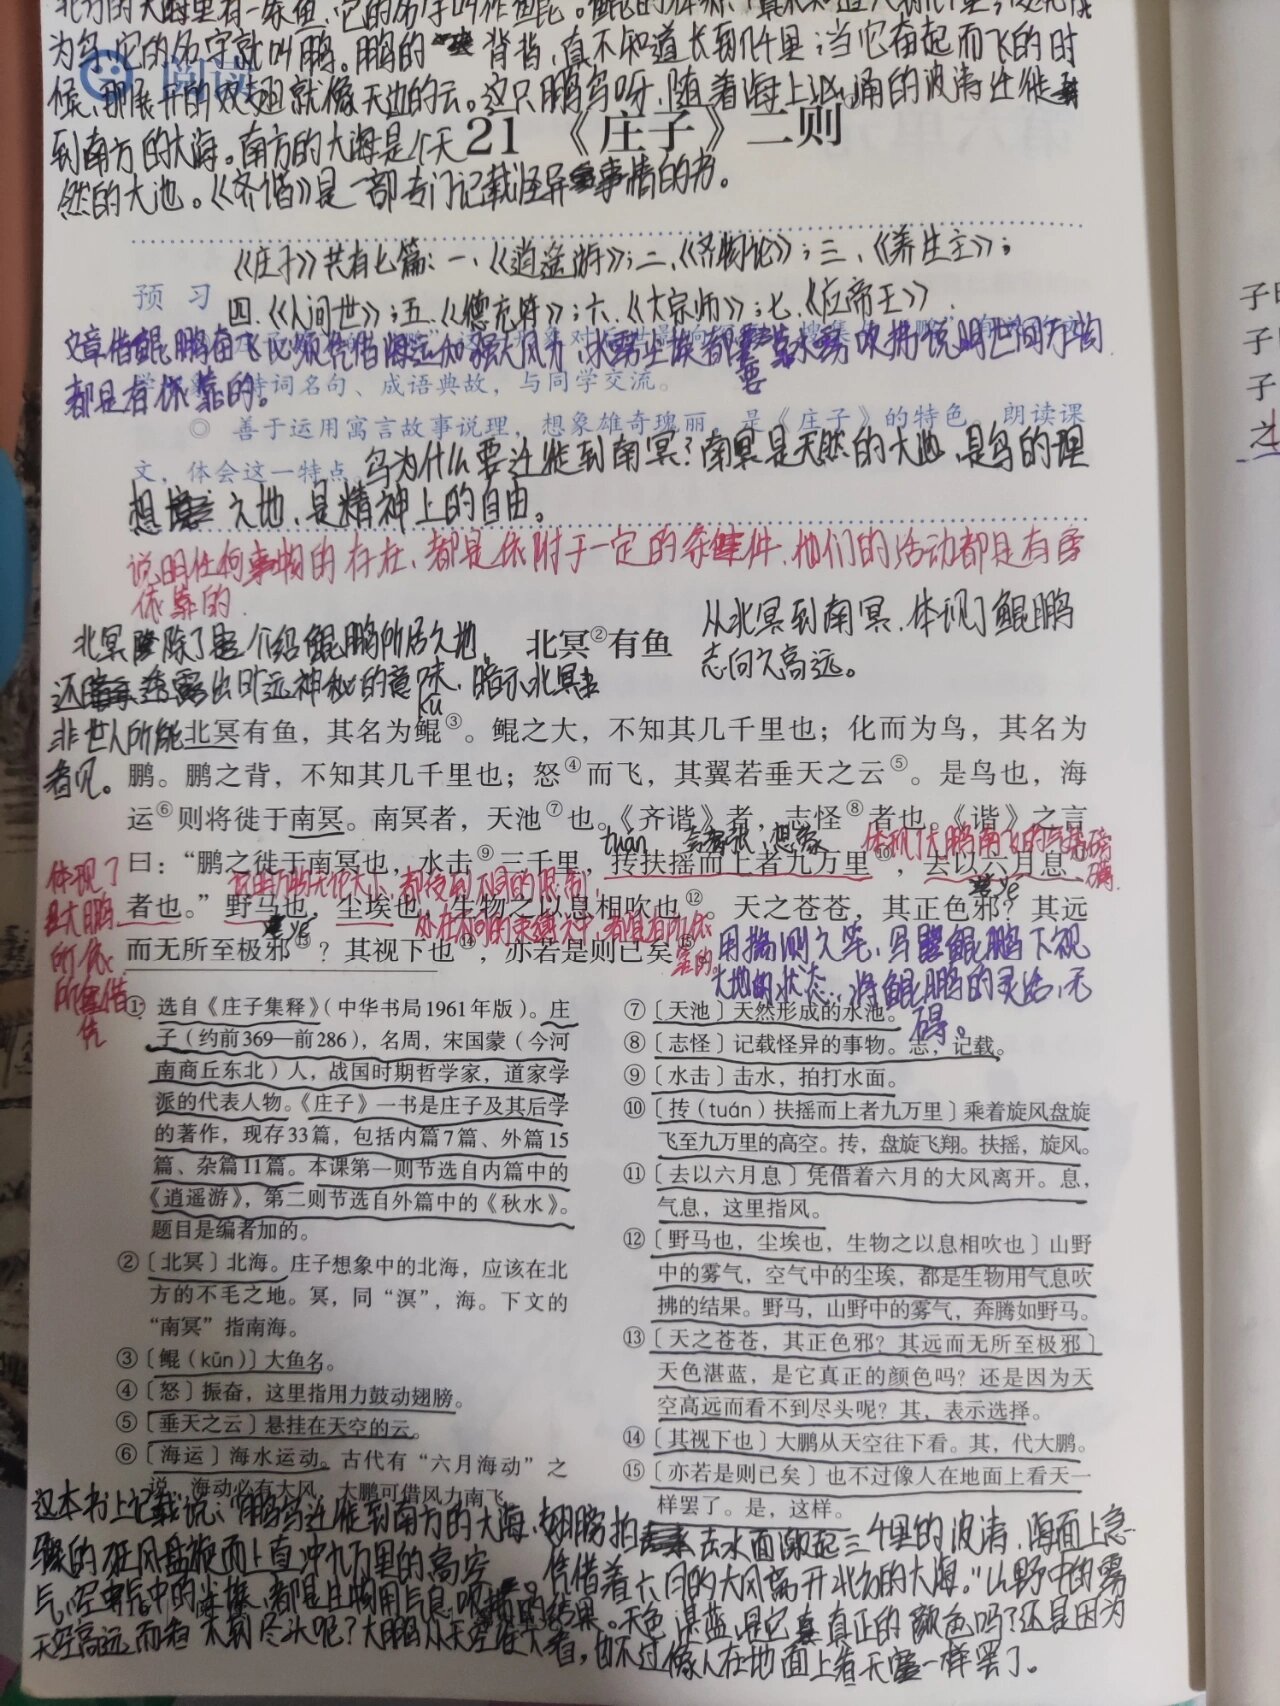 为鸟,它的名字就叫鹏。鹏的背脊,真不知道长到几千里;当它奋起而飞的时
候,那展开的双翅就像天边的云。这只鹏鸟呀,随着海上汹涌的波涛迁徙
到南方的大海。南方的大海是个天
阅读
21 《庄子》二则
然的大池。《齐谐》是一部专门记载怪异事情的书。
《庄子》共有七篇:一、《逍遥游》;二、《齐物论》;三、《养生主》;
预 习
四、《人间世》;五、《德充符》;六、《大宗师》;七、《应帝王》
文章借鲲鹏奋飞必须凭借海运和强大风力,
都是有依靠的。
诗词名句、成语典故,与同学交流。
◎ 善于运用寓言故事说理,想象雄奇瑰丽,是《庄子》的特色。朗读课
文,体会这一特点。
鸟为什么要迁徙到南冥?南冥是天然的大池,是鸟的理
想之地,是精神上的自由。
说明任何事物的存在,都是依附于一定的条件,他们的活动都是有所
依靠的.
北冥除了介绍鲲鹏所居之地,
还透露出旷远神秘的意味,暗示北冥
非世人所能
者见。
北冥②有鱼
从北冥到南冥,体现了鲲鹏
志向之高远。
kū
北冥有鱼,其名为鲲③。鲲之大,不知其几千里也;化而为鸟,其名为
鹏。鹏之背,不知其几千里也;怒④而飞,其翼若垂天之云⑤。是鸟也,海
运⑥则将徙于南冥。南冥者,天池⑦也。《齐谐》者,志怪⑧者也。《谐》之言
tuán
体现了大鹏南飞的气势磅礴.
曰:“鹏之徙于南冥也,水击⑨三千里,抟扶摇而上者九万里⑩,去以六月息⑪
者也。”野马也,尘埃也,生物之以息相吹也⑫。天之苍苍,其正色邪?其远
yé
yé
而无所至极邪⑬?其视下也⑭,亦若是则已矣⑮
体现了
大鹏
用揣测之笔,写鲲鹏下视
大地的状态,将鲲鹏的灵活,无
碍。
① 选自《庄子集释》(中华书局1961年版)。庄
子(约前369—前286),名周,宋国蒙(今河
南商丘东北)人,战国时期哲学家,道家学
派的代表人物。《庄子》一书是庄子及其后学
的著作,现存33篇,包括内篇7篇、外篇15
篇、杂篇11篇。本课第一则节选自内篇中的
《逍遥游》,第二则节选自外篇中的《秋水》。
题目是编者加的。
②〔北冥〕北海。庄子想象中的北海,应该在北
方的不毛之地。冥,同“溟”,海。下文的
“南冥”指南海。
③〔鲲(kūn)〕大鱼名。
④〔怒〕振奋,这里指用力鼓动翅膀。
⑤〔垂天之云〕悬挂在天空的云。
⑥〔海运〕海水运动。古代有“六月海动”之
说。海动必有大风,大鹏可借风力南飞。
⑦〔天池〕天然形成的水池。
⑧〔志怪〕记载怪异的事物。志,记载。
⑨〔水击〕击水,拍打水面。
⑩〔抟(tuán)扶摇而上者九万里〕乘着旋风盘旋
飞至九万里的高空。抟,盘旋飞翔。扶摇,旋风。
⑪〔去以六月息〕凭借着六月的大风离开。息,
气息,这里指风。
⑫〔野马也,尘埃也,生物之以息相吹也〕山野
中的雾气,空气中的尘埃,都是生物用气息吹
拂的结果。野马,山野中的雾气,奔腾如野马。
⑬〔天之苍苍,其正色邪?其远而无所至极邪〕
天色湛蓝,是它真正的颜色吗?还是因为天
空高远而看不到尽头呢?其,表示选择。
⑭〔其视下也〕大鹏从天空往下看。其,代大鹏。
⑮〔亦若是则已矣〕也不过像人在地面上看天一
样罢了。是,这样。
这本书上记载说:“鹏鸟迁徙到南方的大海,翅膀拍击水面激起三千里的波涛,海面上急
骤的狂风盘旋而上直冲九万里的高空,凭借着六月的大风离开北方的大海。”山野中的雾
气,空气中的尘埃,都是生物用气息吹拂的结果。天色湛蓝,是它真正的颜色吗?还是因为
天空高远而看不到尽头呢?大鹏从天空往下看,也不过像人在地面上看天一样罢了。